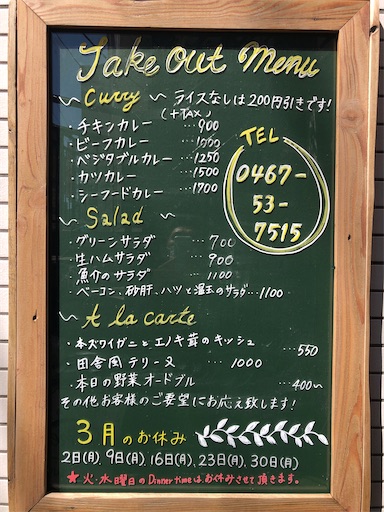 Take Out Menu
~ Curry ~ ライスなしは200円引きです!
(+TAX)
・チキンカレー ・・・900
・ビーフカレー ・・・1000
・ベジタブルカレー ・・・1250
・カツカレー ・・・1500
・シーフードカレー ・・・1700
TEL
0467-
53-
7515
~ Salad ~
・グリーンサラダ ・・・700
・生ハムサラダ ・・・900
・魚介のサラダ ・・・1100
・ベーコン、砂肝、ハツと温玉のサラダ・・・1100
~ A la carte
・本ズワイガニとエノキ茸のキッシュ ・・・550
・田舎風テリーヌ 1000
・本日の野菜オードブル ・・・400~
その他お客様のご要望にお応え致します!
3月のお休み
2日(月)、9日(月)、16日(月)、23日(月)、30日(月)
★火・水曜日のDinner timeはお休みさせて頂きます。